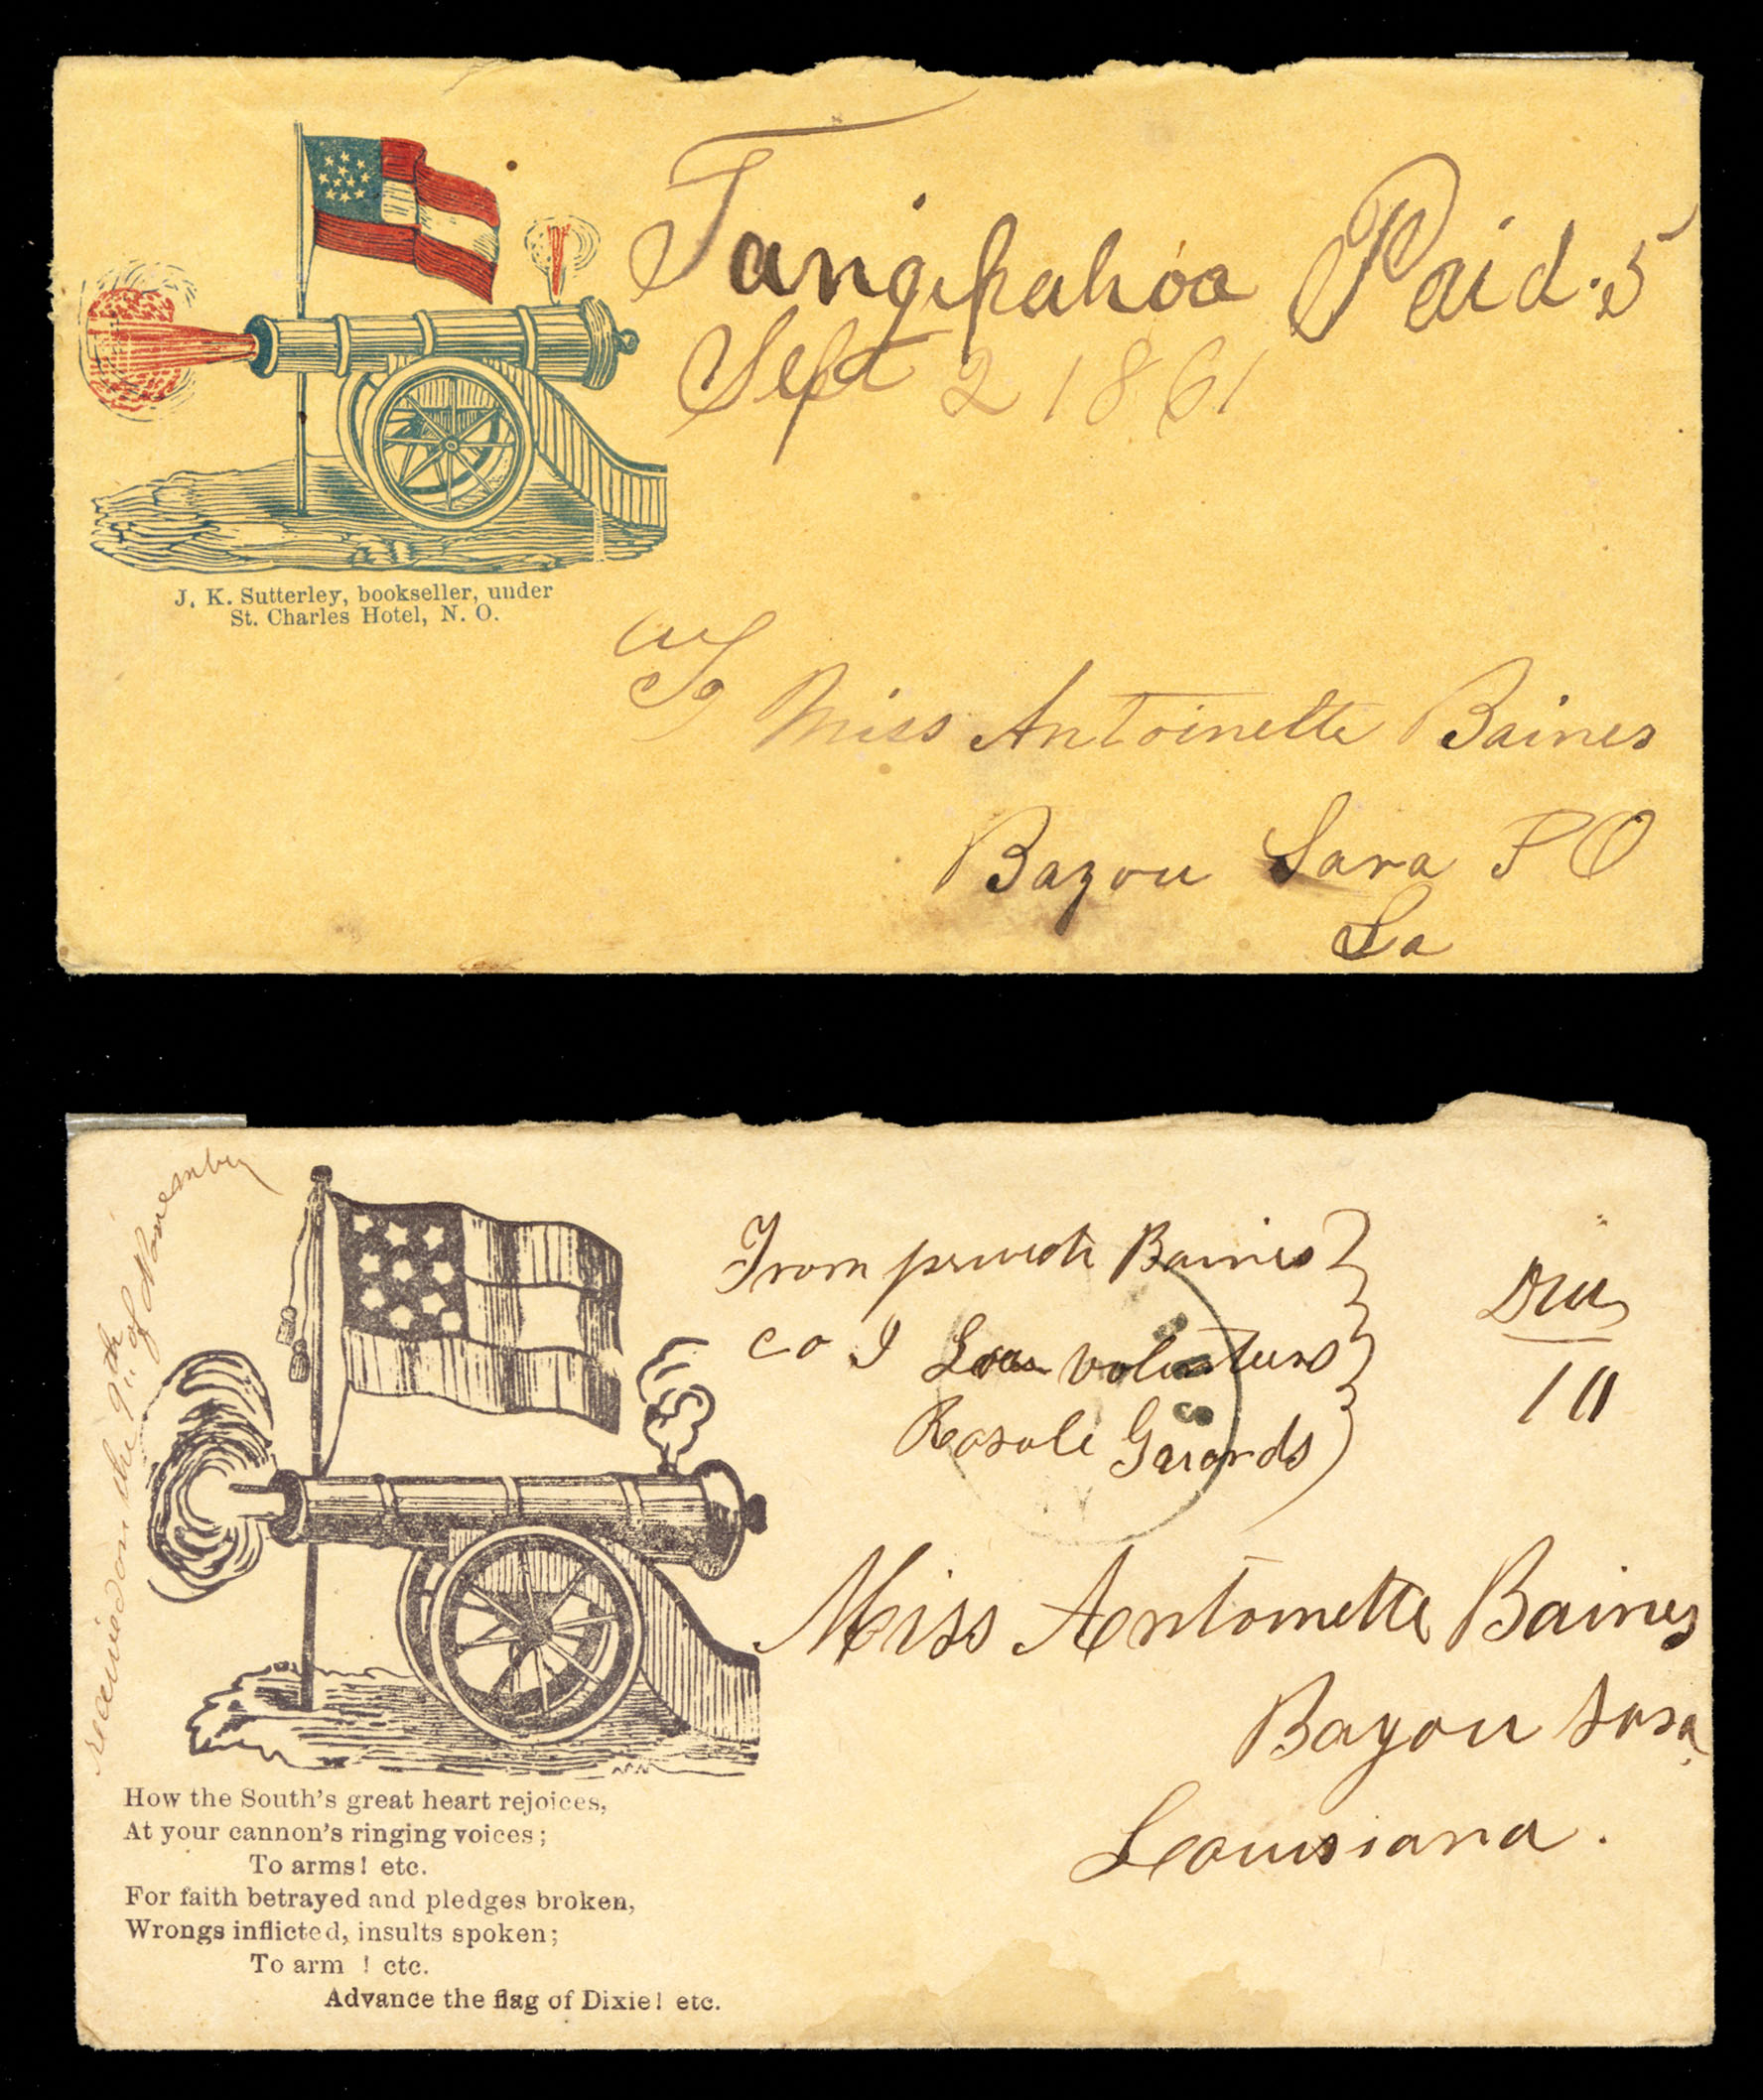 Tangipahoa Paid 5
Sept 2 1861
J. K. Sutterley, bookseller, under
St. Charles Hotel, N. O.
To Miss Antoinette Baines
Bayou Sara P O
La
received on the 9th of November
From private Baines
Co I Lou volunteers
Rosale Guards
Due
10
Miss Antoinette Baines
Bayou Sara
Louisiana.
How the South's great heart rejoices,
At your cannon's ringing voices;
To arms! etc.
For faith betrayed and pledges broken,
Wrongs inflicted, insults spoken;
To arm ! etc.
Advance the flag of Dixie! etc.